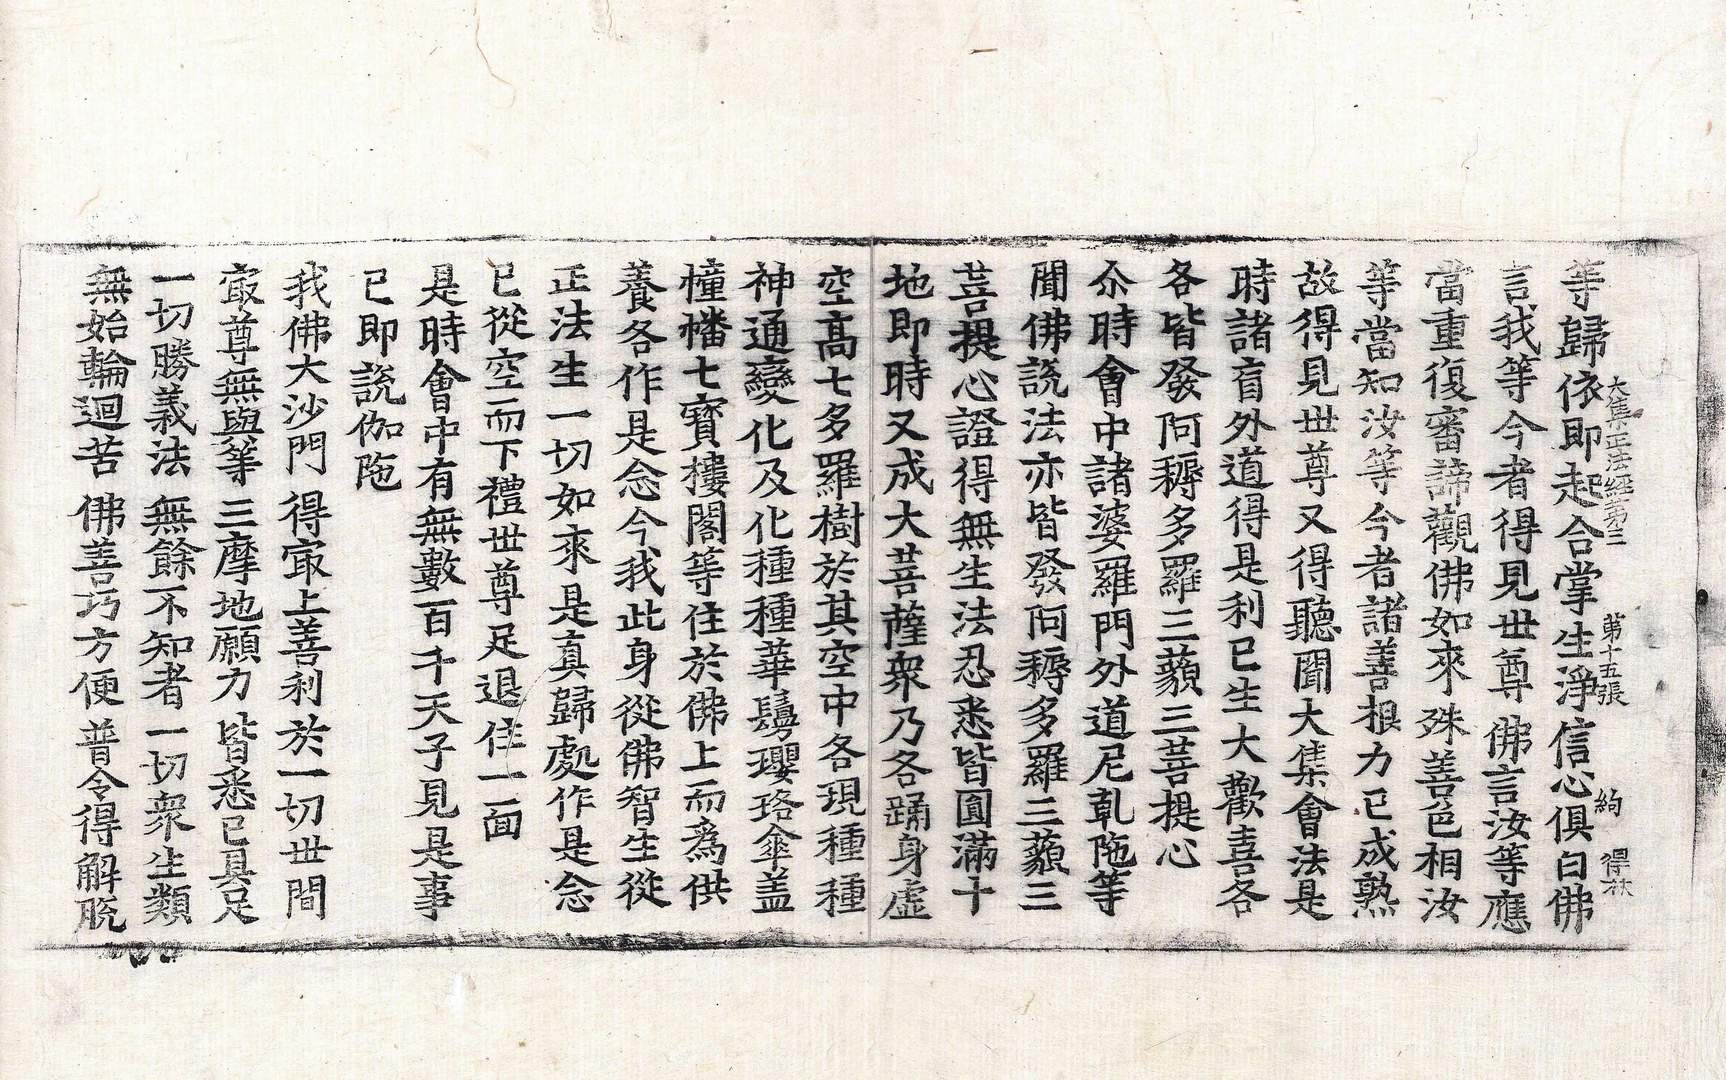 大集正法經第三　第十五張　絢　得林
等歸依即起合掌生淨信心俱白佛
言我等今者得見世尊佛言汝等應
當重復審諦觀佛如來殊善色相汝
等當知汝等今者諸善根力已成熟
故得見世尊又得聽聞大集會法是
時諸盲外道得是利已生大歡喜各
各皆發阿耨多羅三藐三菩提心
尒時會中諸婆羅門外道尼乹陁等
聞佛說法亦皆發阿耨多羅三藐三
菩提心證得無生法忍悉皆圓滿十
地即時又成大菩薩衆乃各踊身虛
空高七多羅樹於其空中各現種種
神通變化及化種種華鬘瓔珞傘盖
幢幡七寳樓閣等住於佛上而為供
養各作是念今我此身從佛智生從
正法生一切如來是真歸處作是念
已從空而下禮世尊足退住一面
是時會中有無數百千天子見是事
已即說伽陁
我佛大沙門　得㝡上善利於一切世間
㝡尊無與等　三摩地願力　皆悉已具足
一切勝義法　無餘不知者　一切衆生類
無始輪迴苦　佛善巧方便　普令得解脫